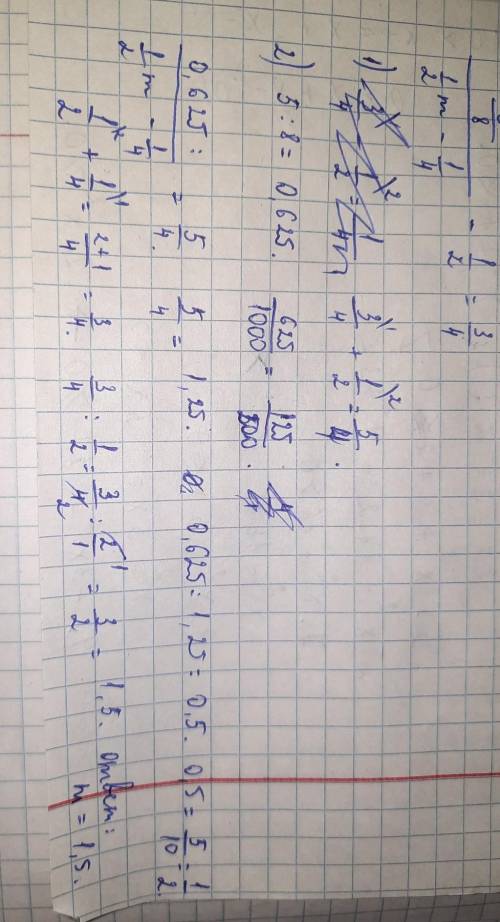 5/8
1/2 m - 1/4 - 1/2 = 3/4
1) 3/4 + 1/2 = 5/4.
2) 5 : 8 = 0,625. 625/1000 = 125/
0,625 : = 5/4. 5/4 = 1,25. 0,625 : 1,25 = 0,5. 0,5 = 5/10 = 1/2.
1/2 m - 1/4
1/2 + 1/4 = 2+1/4 = 3/4. 3/4 : 1/2 = 3/4 : 2/1 = 3/2 = 1,5. Ответ:
m = 1,5.